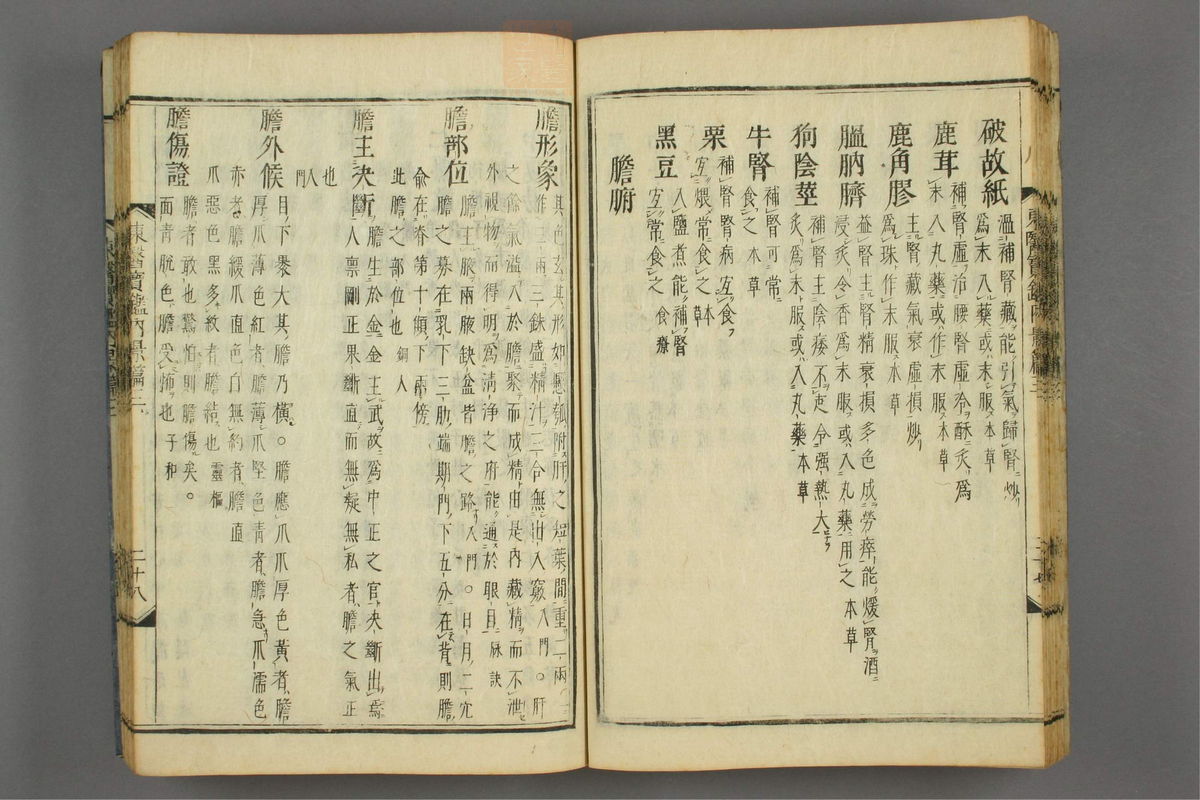 破故紙溫補腎藏能引氣歸腎炒
爲末入藥或末服本草
鹿茸補腎虛治腰腎虛冷酥炙爲
末入丸藥或作末服本草
鹿角膠主腎藏氣衰虛損炒
爲珠作末服本草
膃肭臍益腎主腎精衰損多色成勞瘁能煖腎酒
浸炙令香爲末服或入丸藥用之本草
狗陰莖補腎主陰痿不起令强熱大
炙爲末服或入丸藥本草
牛腎補腎可常
食之本草
栗補腎腎病宜食
宜煨常食之本草
黑豆入鹽煮能補腎
宜常食之食療
膽腑
東醫寶鑑內景篇三
膽形象其色玄其形如懸瓠附肝之短葉間重二兩
作三兩三銖盛精汁三合無出入竅入門○肝
之餘氣溢入於膽聚而成精由是內藏精而不泄
外視物而得明爲清淨之府能通於眼目脉訣
膽部位膽主腋兩腋缺盆皆膽之路入門○日月二穴
膽之募在乳下三肋端期門下五分在背則膽
兪在脊第十顀下兩傍
此膽之部位也銅人
膽主決斷膽生於金金主武故爲中正之官決斷出焉
人禀剛正果斷直而無疑無私者膽之氣正
也入
門
膽外候目下裹大其膽乃橫○膽應爪爪厚色黃者膽
厚爪薄色紅者膽薄爪堅色靑者膽急爪濡色
赤者膽緩爪直色白無約者膽直
爪惡色黑多紋者膽結也靈樞
膽傷證膽者敢也驚怕則膽傷矣○
面靑脫色膽受怖也子和
東醫寶鑑內景篇三
二十八